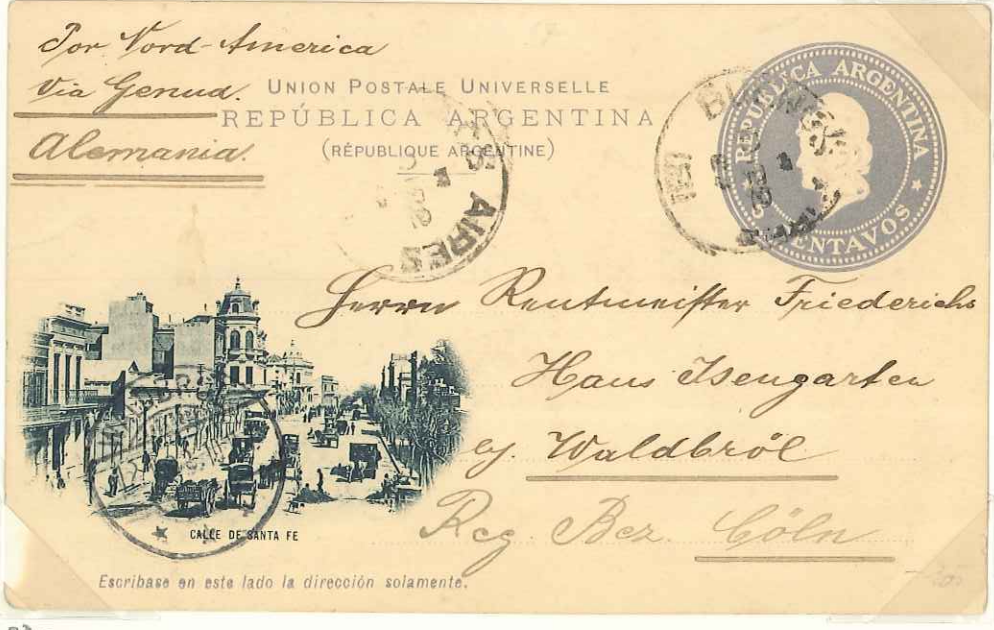 Por Nord-America
Via Genua.
Alemania.
UNION POSTALE UNIVERSELLE
REPÚBLICA ARGENTINA
(RÉPUBLIQUE ARGENTINE)
REPUBLICA ARGENTINA
CENTAVOS
BUENOS
S AIRES
Herrn Rentmeister Friederichs
Haus Isengarten
Waldbröl
Reg. Bez. Cöln
CALLE DE SANTA FE
Escríbase en este lado la dirección solamente.